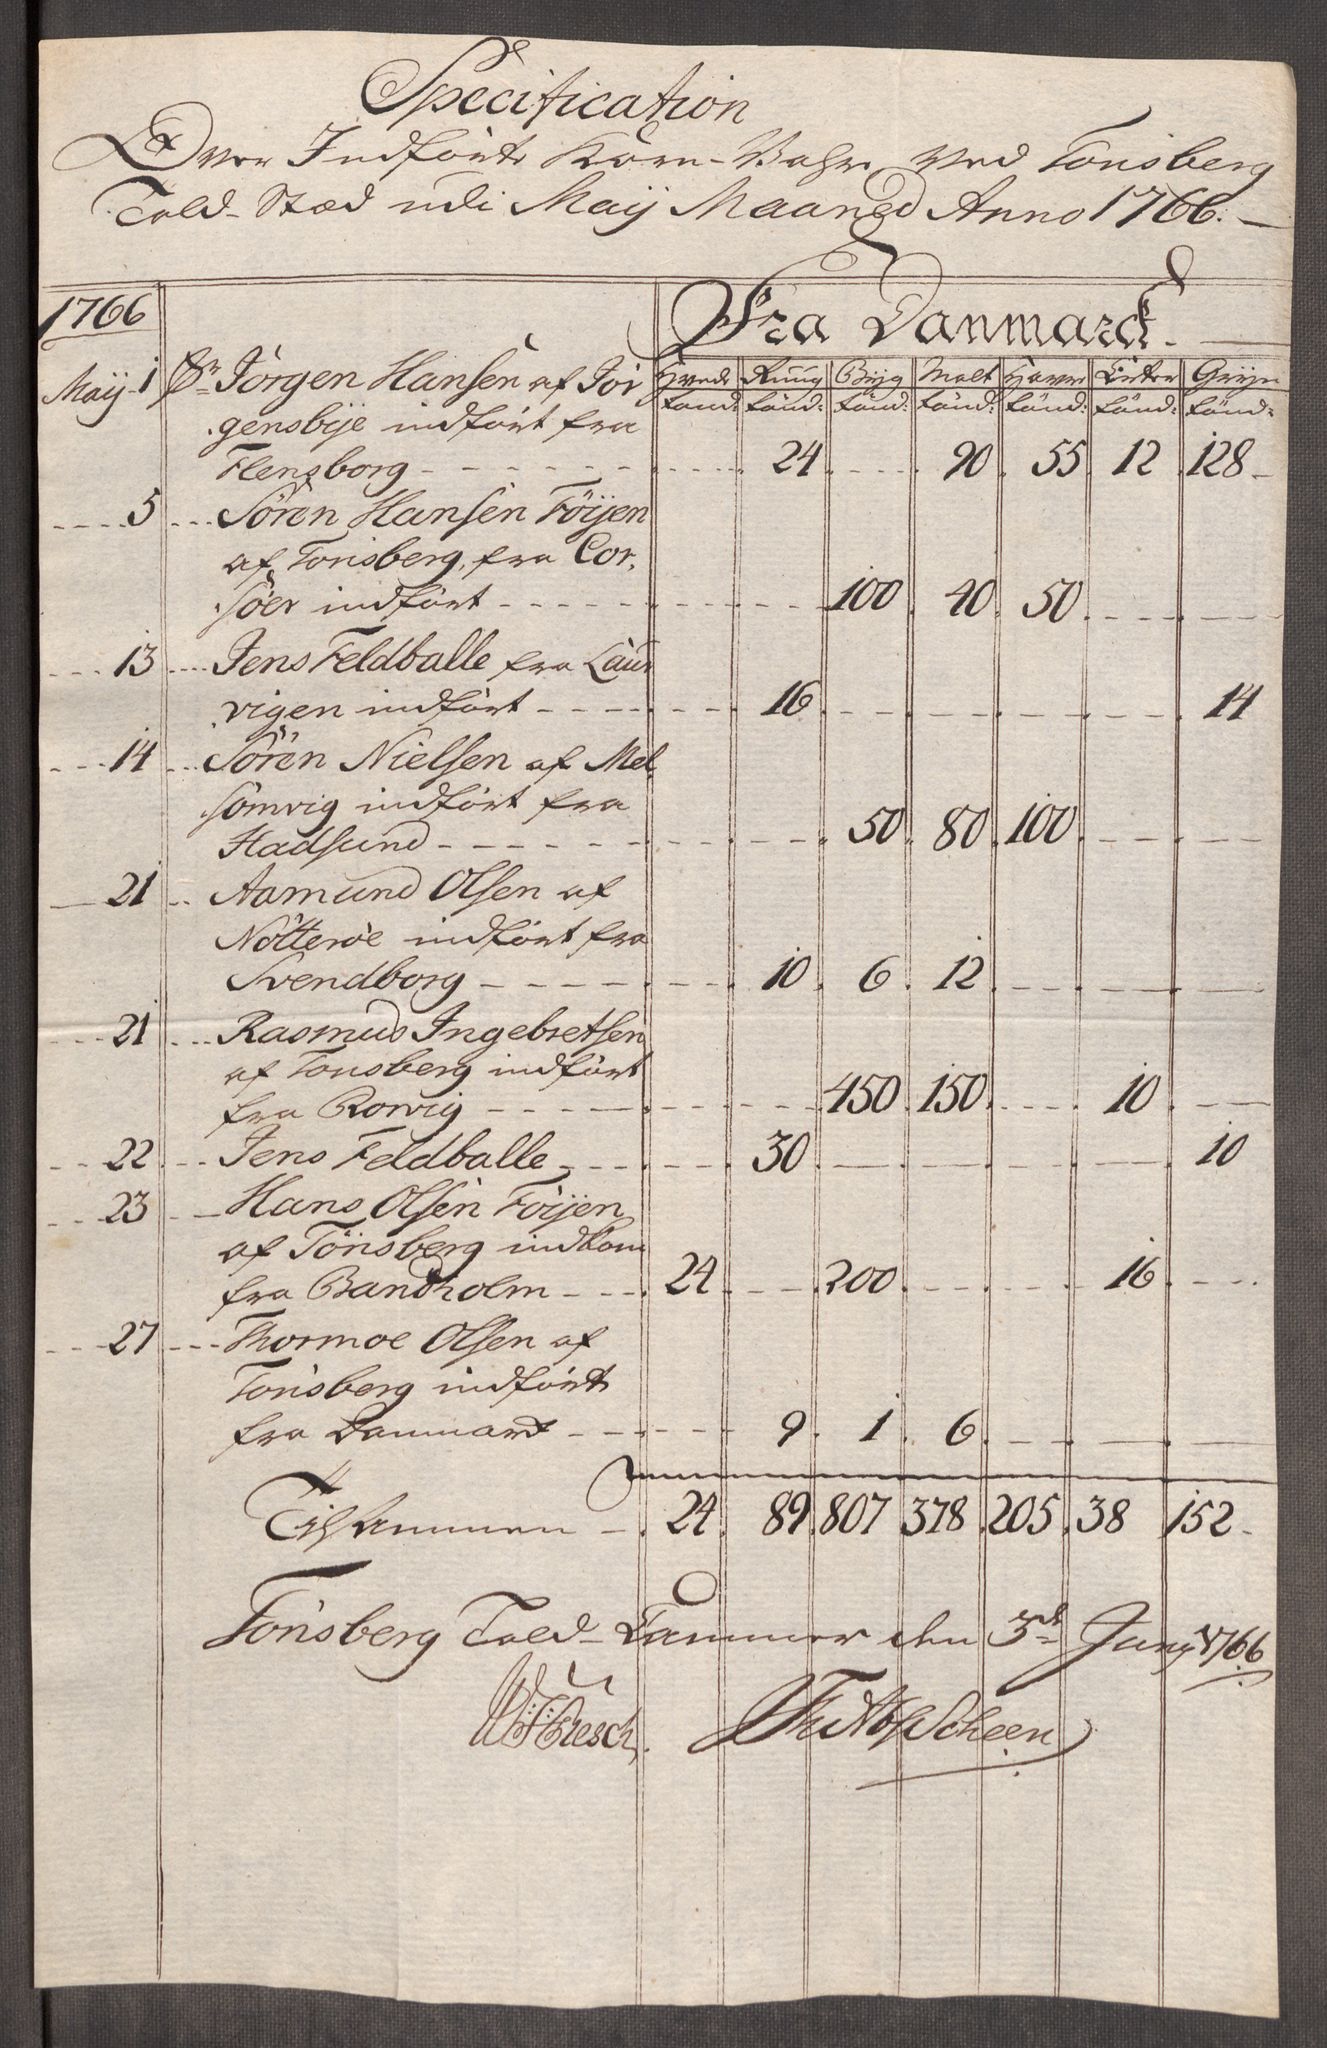 Specification
Over Indførte Korn-Vahre ved Tønsberg
Told-Stæd udi Maij Maaned Anno 1766.
1766 Fra Danmarck
Hvede Rüug Büg Malt Havre Erter Grÿn
Tønd: Tønd: Tønd: Tønd: Tønd: Tønd: Tønd:
Maij 1 Sr Jörgen Hansen af Jör
gensbÿe indført fra
Flensborg 24 90 55 12 128
5 Sören Hansen Föÿen
af Tönsberg, fra Cor,
söer indført 100 40 50
13 Jens Feldballe fra Laur
vigen indført 16 14
14 Sören Nielsen af Mel
sömvig indført fra
Hadsund 50 80 100
21 Aamund Olsen af
Nötteröe indført fra
Svendborg 10 6 12
21 Rasmus Ingebretsen
af Tönsberg indført
fra Rorvig 450 150 10
22 Jens Feldballe 30 10
23 Hans Olsen Föÿen
af Tönsberg indkom
fra Bandholm 24 200 16
27 Thormoe Olsen af
Tönsberg indførte
fra Danmark 9 1 6
Tilsammen 24 89 807 378 205 38 152
Tönsberg Told-Cammer den 3de Junÿ 1766
Scheen